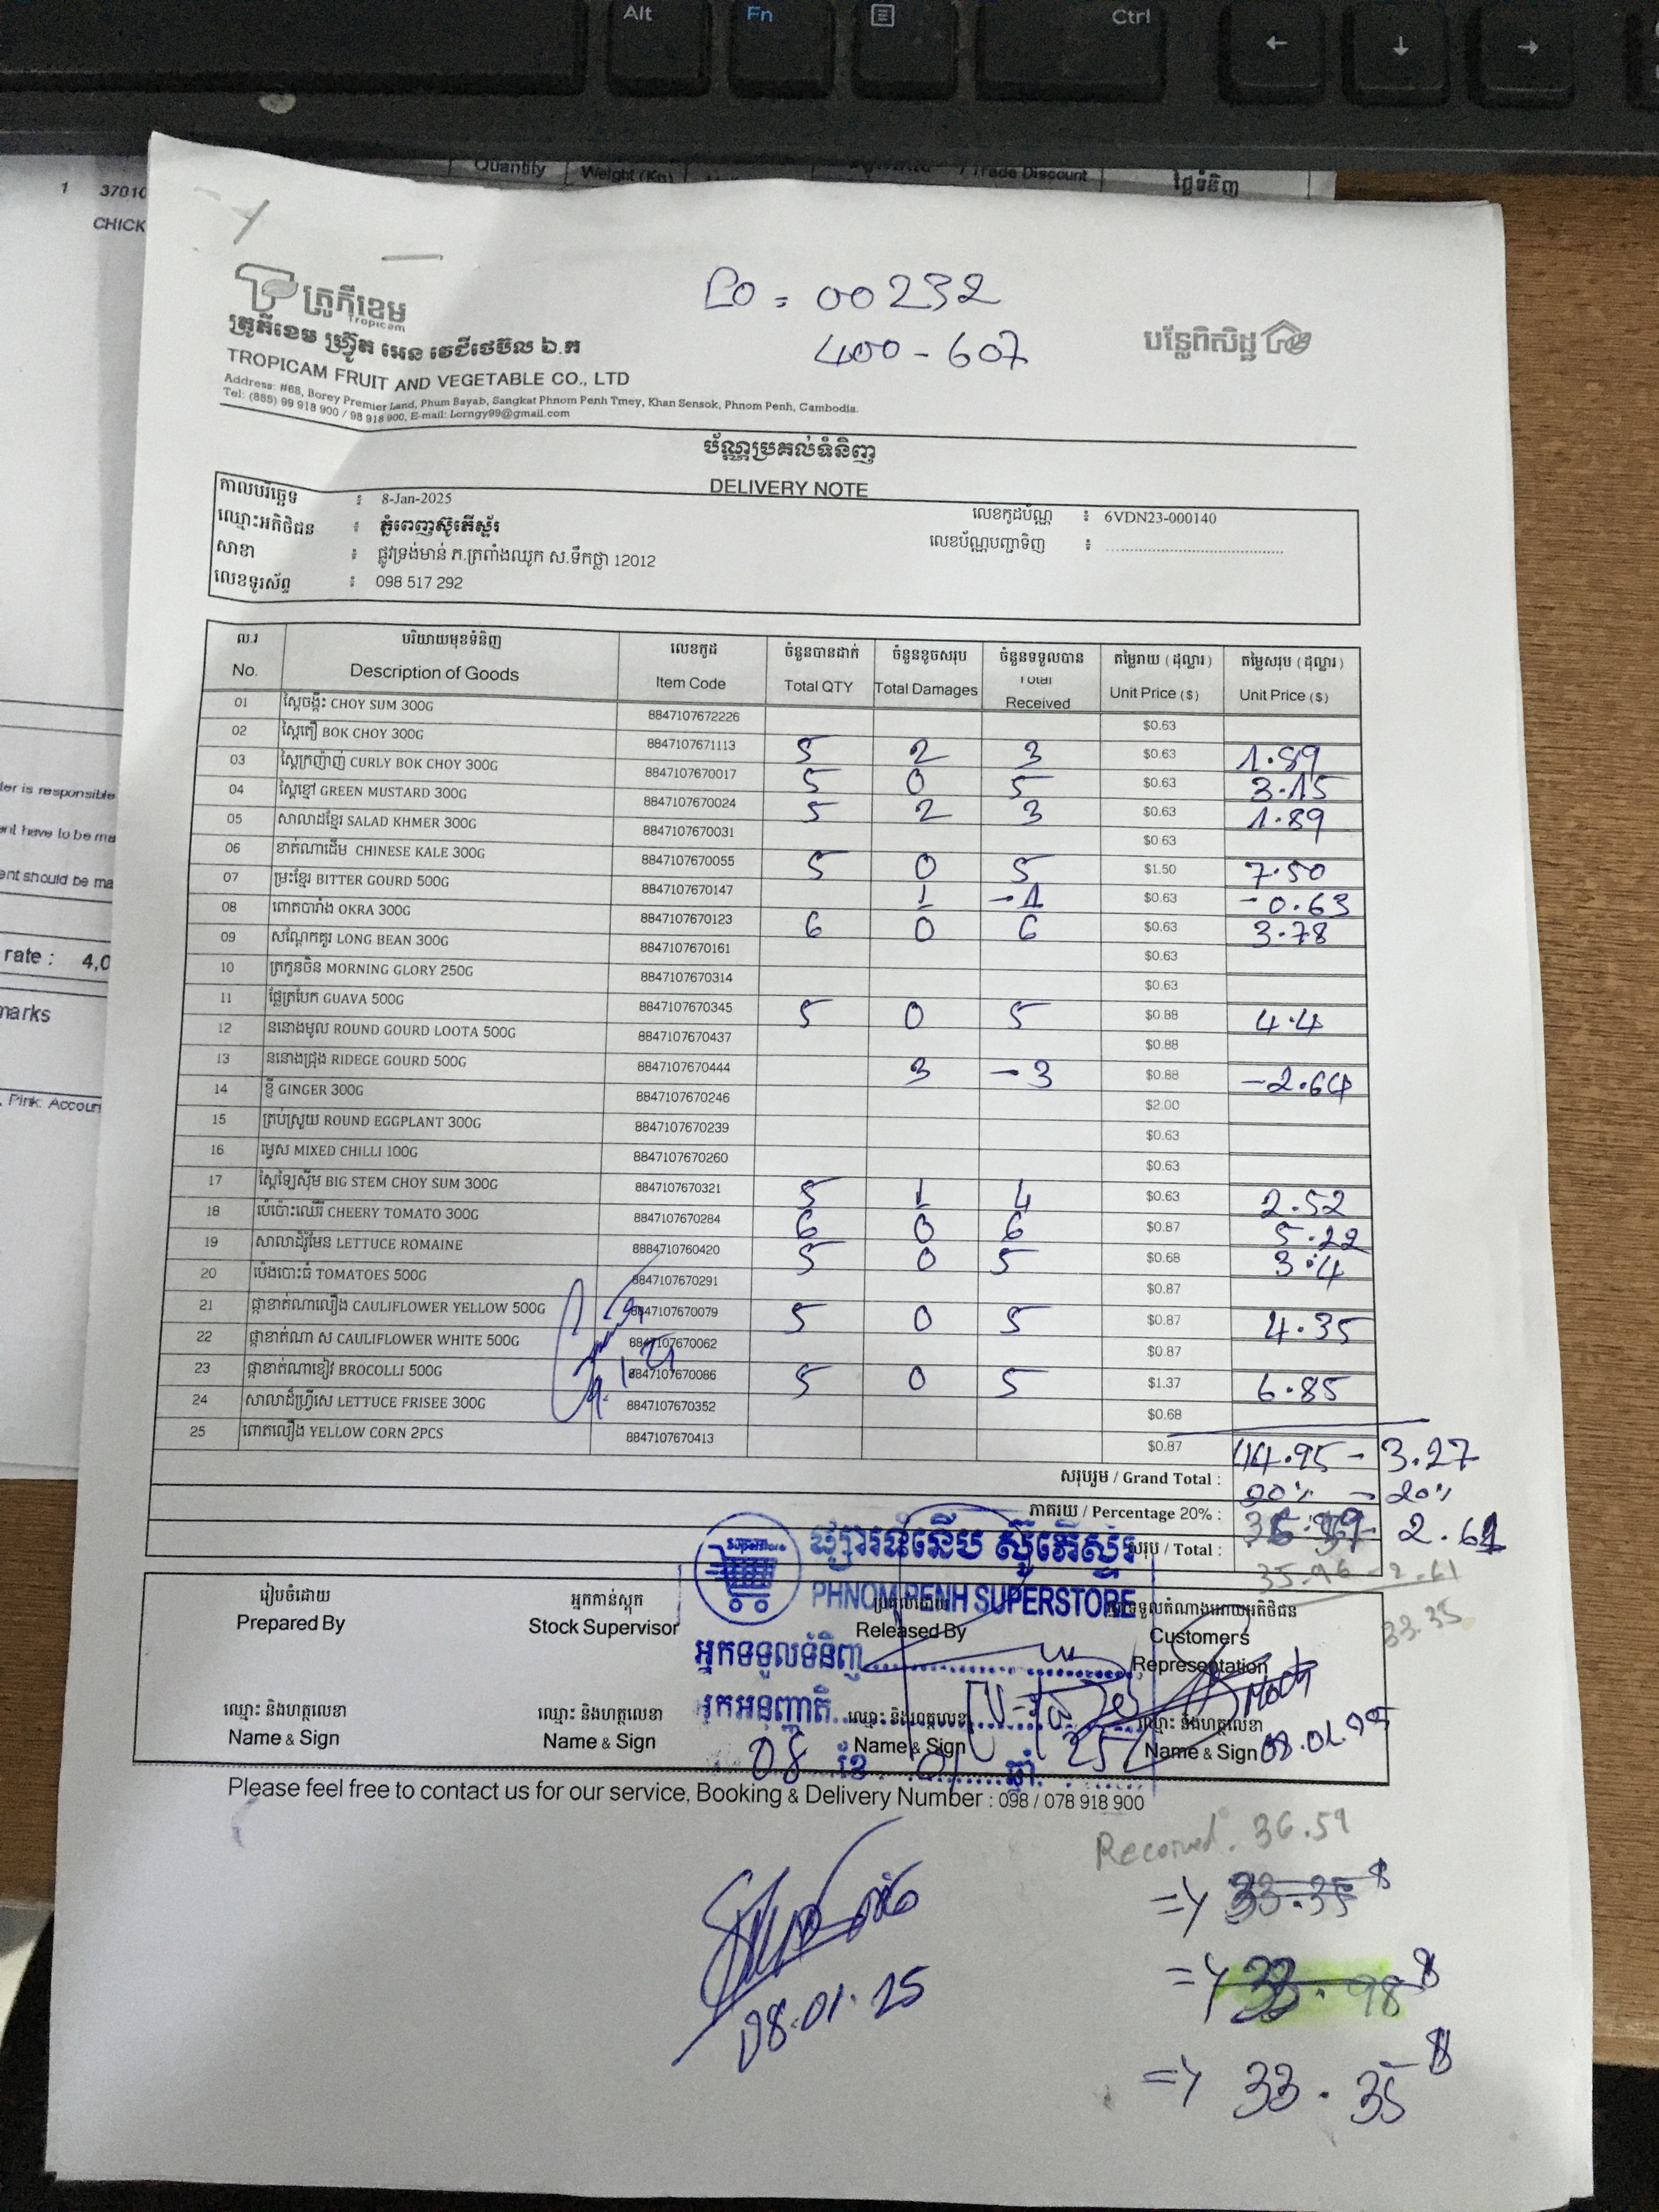 Alt Fn Ctrl
← ↓ →
Quantity Weight (Kg) / Trade Discount ថ្លៃទំនិញ
1 37010
CHICK
PO = 00232
400-607
ត្រូភីខេម
Tropicam
បន្លែពិសិដ្ឋ
ត្រូភីខេម ហ្វ្រ៊ូត អេន វេជីថេប៊ល ឯ.ក
TROPICAM FRUIT AND VEGETABLE CO., LTD
Address: #68, Borey Premier Land, Phum Bayab, Sangkat Phnom Penh Tmey, Khan Sensok, Phnom Penh, Cambodia.
Tel: (885) 99 918 900 / 98 918 900, E-mail: Lorngy99@gmail.com
ប័ណ្ណប្រគល់ទំនិញ
DELIVERY NOTE
កាលបរិច្ឆេទ : 8-Jan-2025
លេខកូដប័ណ្ណ : 6VDN23-000140
ឈ្មោះអតិថិជន : ភ្នំពេញស៊ូភើស្ទ័រ
លេខប័ណ្ណបញ្ជាទិញ :
សាខា : ផ្លូវទ្រង់មាន់ ភ.ត្រពាំងឈូក ស.ទឹកថ្លា 12012
លេខទូរស័ព្ទ : 098 517 292
ល.រ បរិយាយមុខទំនិញ លេខកូដ ចំនួនបានដាក់ ចំនួនខូចសរុប ចំនួនទទួលបាន តម្លៃរាយ (ដុល្លារ) តម្លៃសរុប (ដុល្លារ)
No. Description of Goods Item Code Total QTY Total Damages Total Received Unit Price ($) Unit Price ($)
01 ស្ពៃចង្កឹះ CHOY SUM 300G 8847107672226 $0.63
02 ស្ពៃតឿ BOK CHOY 300G 8847107671113 5 2 3 $0.63 1.89
03 ស្ពៃក្រញ៉ាញ់ CURLY BOK CHOY 300G 8847107670017 5 0 5 $0.63 3.15
04 ស្ពៃខ្មៅ GREEN MUSTARD 300G 8847107670024 5 2 3 $0.63 1.89
05 សាលាដខ្មែរ SALAD KHMER 300G 8847107670031 $0.63
06 ខាត់ណាដើម CHINESE KALE 300G 8847107670055 5 0 5 $1.50 7.50
07 ម្រះខ្មែរ BITTER GOURD 500G 8847107670147 1 -1 $0.63 -0.63
08 ពោតបារាំង OKRA 300G 8847107670123 6 0 6 $0.63 3.78
09 សណ្តែកគួរ LONG BEAN 300G 8847107670161 $0.63
10 ត្រកួនចិន MORNING GLORY 250G 8847107670314 $0.63
11 ផ្លែត្របែក GUAVA 500G 8847107670345 5 0 5 $0.88 4.4
12 ននោងមូល ROUND GOURD LOOTA 500G 8847107670437 $0.88
13 ននោងជ្រុង RIDEGE GOURD 500G 8847107670444 3 -3 $0.88 -2.64
14 ខ្ញី GINGER 300G 8847107670246 $2.00
15 ត្រប់ស្រួយ ROUND EGGPLANT 300G 8847107670239 $0.63
16 ម្ទេស MIXED CHILLI 100G 8847107670260 $0.63
17 ស្ពៃឡៃស៊ីម BIG STEM CHOY SUM 300G 8847107670321 5 1 4 $0.63 2.52
18 ប៉េប៉ោះឈើរី CHEERY TOMATO 300G 8847107670284 6 0 6 $0.87 5.22
19 សាលាដ៌រ៉ូមែន LETTUCE ROMAINE 8884710760420 5 0 5 $0.68 3.4
20 ប៉េងបោះធំ TOMATOES 500G 8847107670291 $0.87
21 ផ្កាខាត់ណាលឿង CAULIFLOWER YELLOW 500G 8847107670079 5 0 5 $0.87 4.35
22 ផ្កាខាត់ណា ស CAULIFLOWER WHITE 500G 8847107670062 $0.87
23 ផ្កាខាត់ណាខៀវ BROCOLLI 500G 8847107670086 5 0 5 $1.37 6.85
24 សាលាដ៌ហ្វ្រីសេ LETTUCE FRISEE 300G 8847107670352 $0.68
25 ពោតលឿង YELLOW CORN 2PCS 8847107670413 $0.87
សរុបរួម / Grand Total : 44.95 - 3.27
ភាគរយ / Percentage 20% : 20% - 20%
សរុប / Total : 2.61
35.96 - 2.61
33.35
ផ្សារទំនើប ស៊ូភើស្ទ័រ
PHNOM PENH SUPERSTORE
អ្នកទទួលទំនិញ
អ្នកអនុញ្ញាតិ
08 ខែ 01 ឆ្នាំ 25
រៀបចំដោយ អ្នកកាន់ស្តុក ប្រគល់ដោយ អ្នកទទួលតំណាងអោយអតិថិជន
Prepared By Stock Supervisor Released By Customers Representation
ឈ្មោះ និងហត្ថលេខា ឈ្មោះ និងហត្ថលេខា ឈ្មោះ និងហត្ថលេខា ឈ្មោះ និងហត្ថលេខា
Name & Sign Name & Sign Name & Sign Name & Sign
Please feel free to contact us for our service, Booking & Delivery Number : 098 / 078 918 900
Received. 36.59
=> 33.35 $
=> 33.98 $
=> 33.35 $
08.01.25
ler is responsible
ent have to be ma
ent should be ma
rate : 4,0
marks
, Pink: Accoun